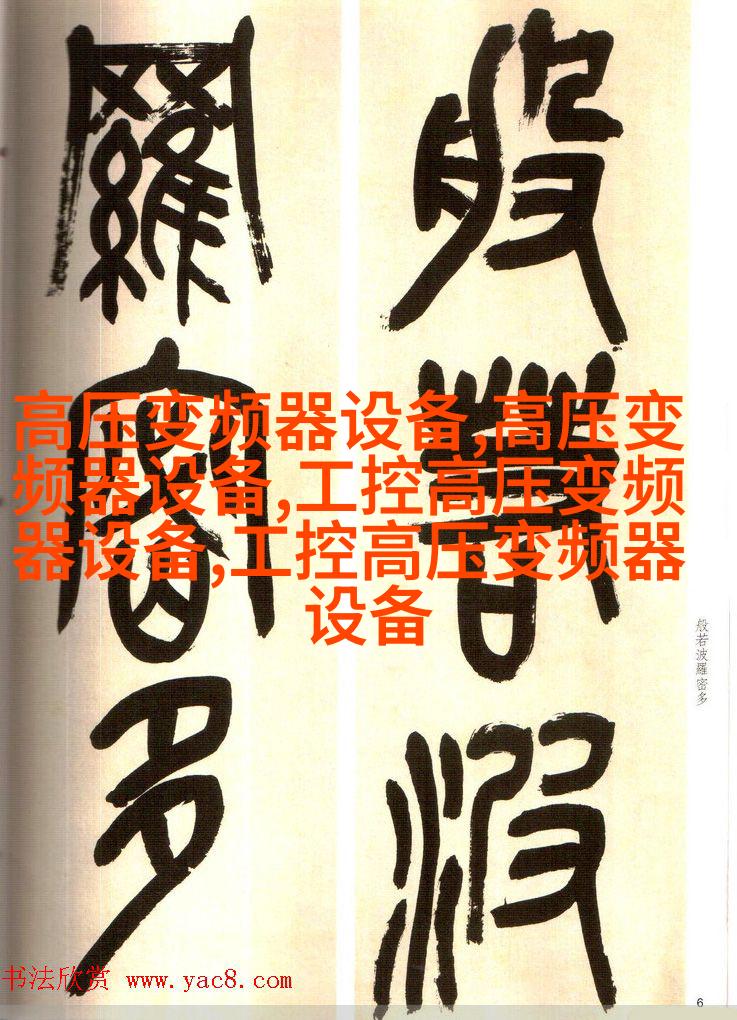 般若波
羅密多
高压变频器设备,高压变
频器设备,工控高压变频
器设备,工控高压变频器
设备
般若波羅密多
书法欣赏 www.yac8.com
6